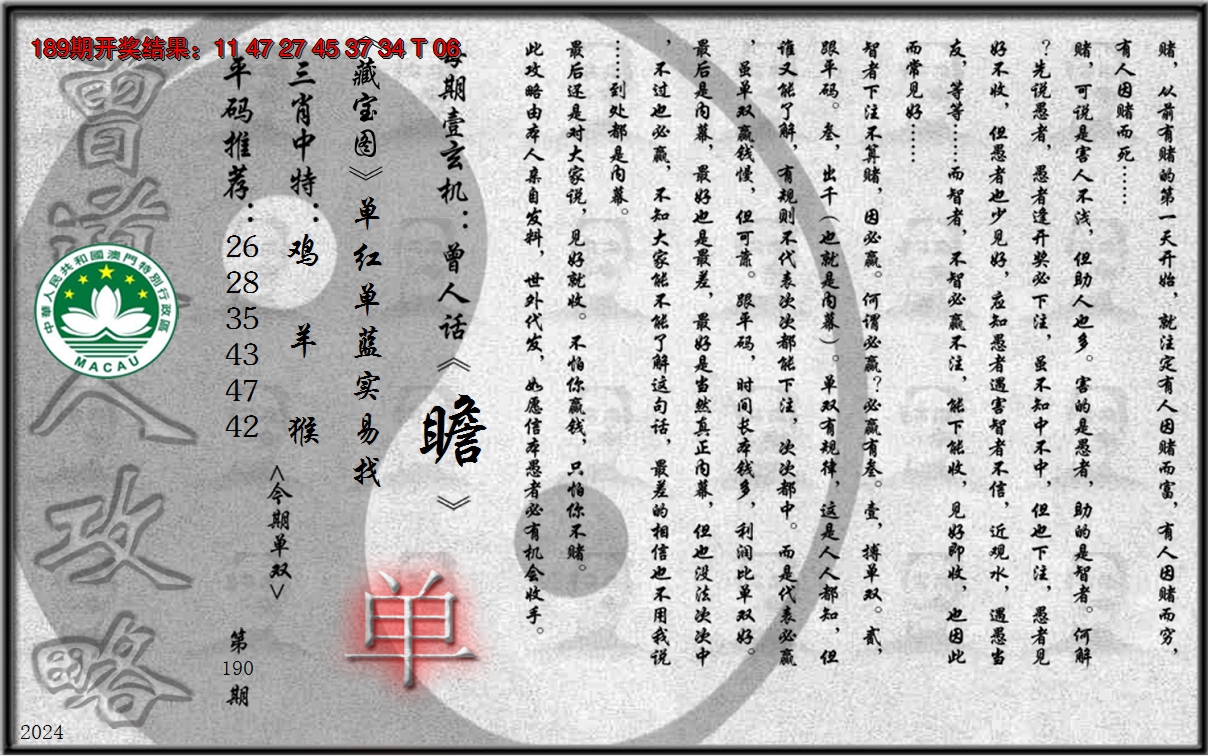 189期开奖结果：11 47 27 45 37 34 T 06
赌，从前有赌的第一天开始，就注定有人因赌而富，有人因赌而穷，
有人因赌而死……
赌，可说是害人不浅，但助人也多。害的是愚者，助的是智者。何解
？先说愚者，愚者逢开奖必下注，虽不知中不中，但也下注，愚者见
好不收，但愚者也少见好，应知愚者遇害智者不信，近观水，遇愚当
友，等等……而智者，不智必赢不注，能下能收，见好即收，也因此
而常见好……
智者下注不算赌，因必赢。何谓必赢？必赢有叁。壹，搏单双。贰，
跟平码。叁，出千（也就是内幕）。单双有规律，这是人人都知，但
谁又能了解，有规则不代表次次都能下注，次次都中。而是代表必赢
，虽单双赢钱慢，但可靠。跟平码，时间长本钱多，利润比单双好。
最后是内幕，最好也是最差，最好是当然真正内幕，但也没法次次中
，不过也必赢，不知大家能不能了解这句话，最差的相信也不用我说
……到处都是内幕。
最后还是对大家说，见好就收。不怕你赢钱，只怕你不赌。
此攻略由本人亲自发料，世外代发，如愿信本愚者必有机会收手。
每期壹玄机：曾人话《瞻》
《藏宝图》单红单蓝实易找
三肖中特：鸡 羊 猴
平码推荐：
26
28
35
43
47
42
<今期单双>
单
第
190
期
曾道人攻略
中華人民共和國澳門特別行政區
MACAU
2024